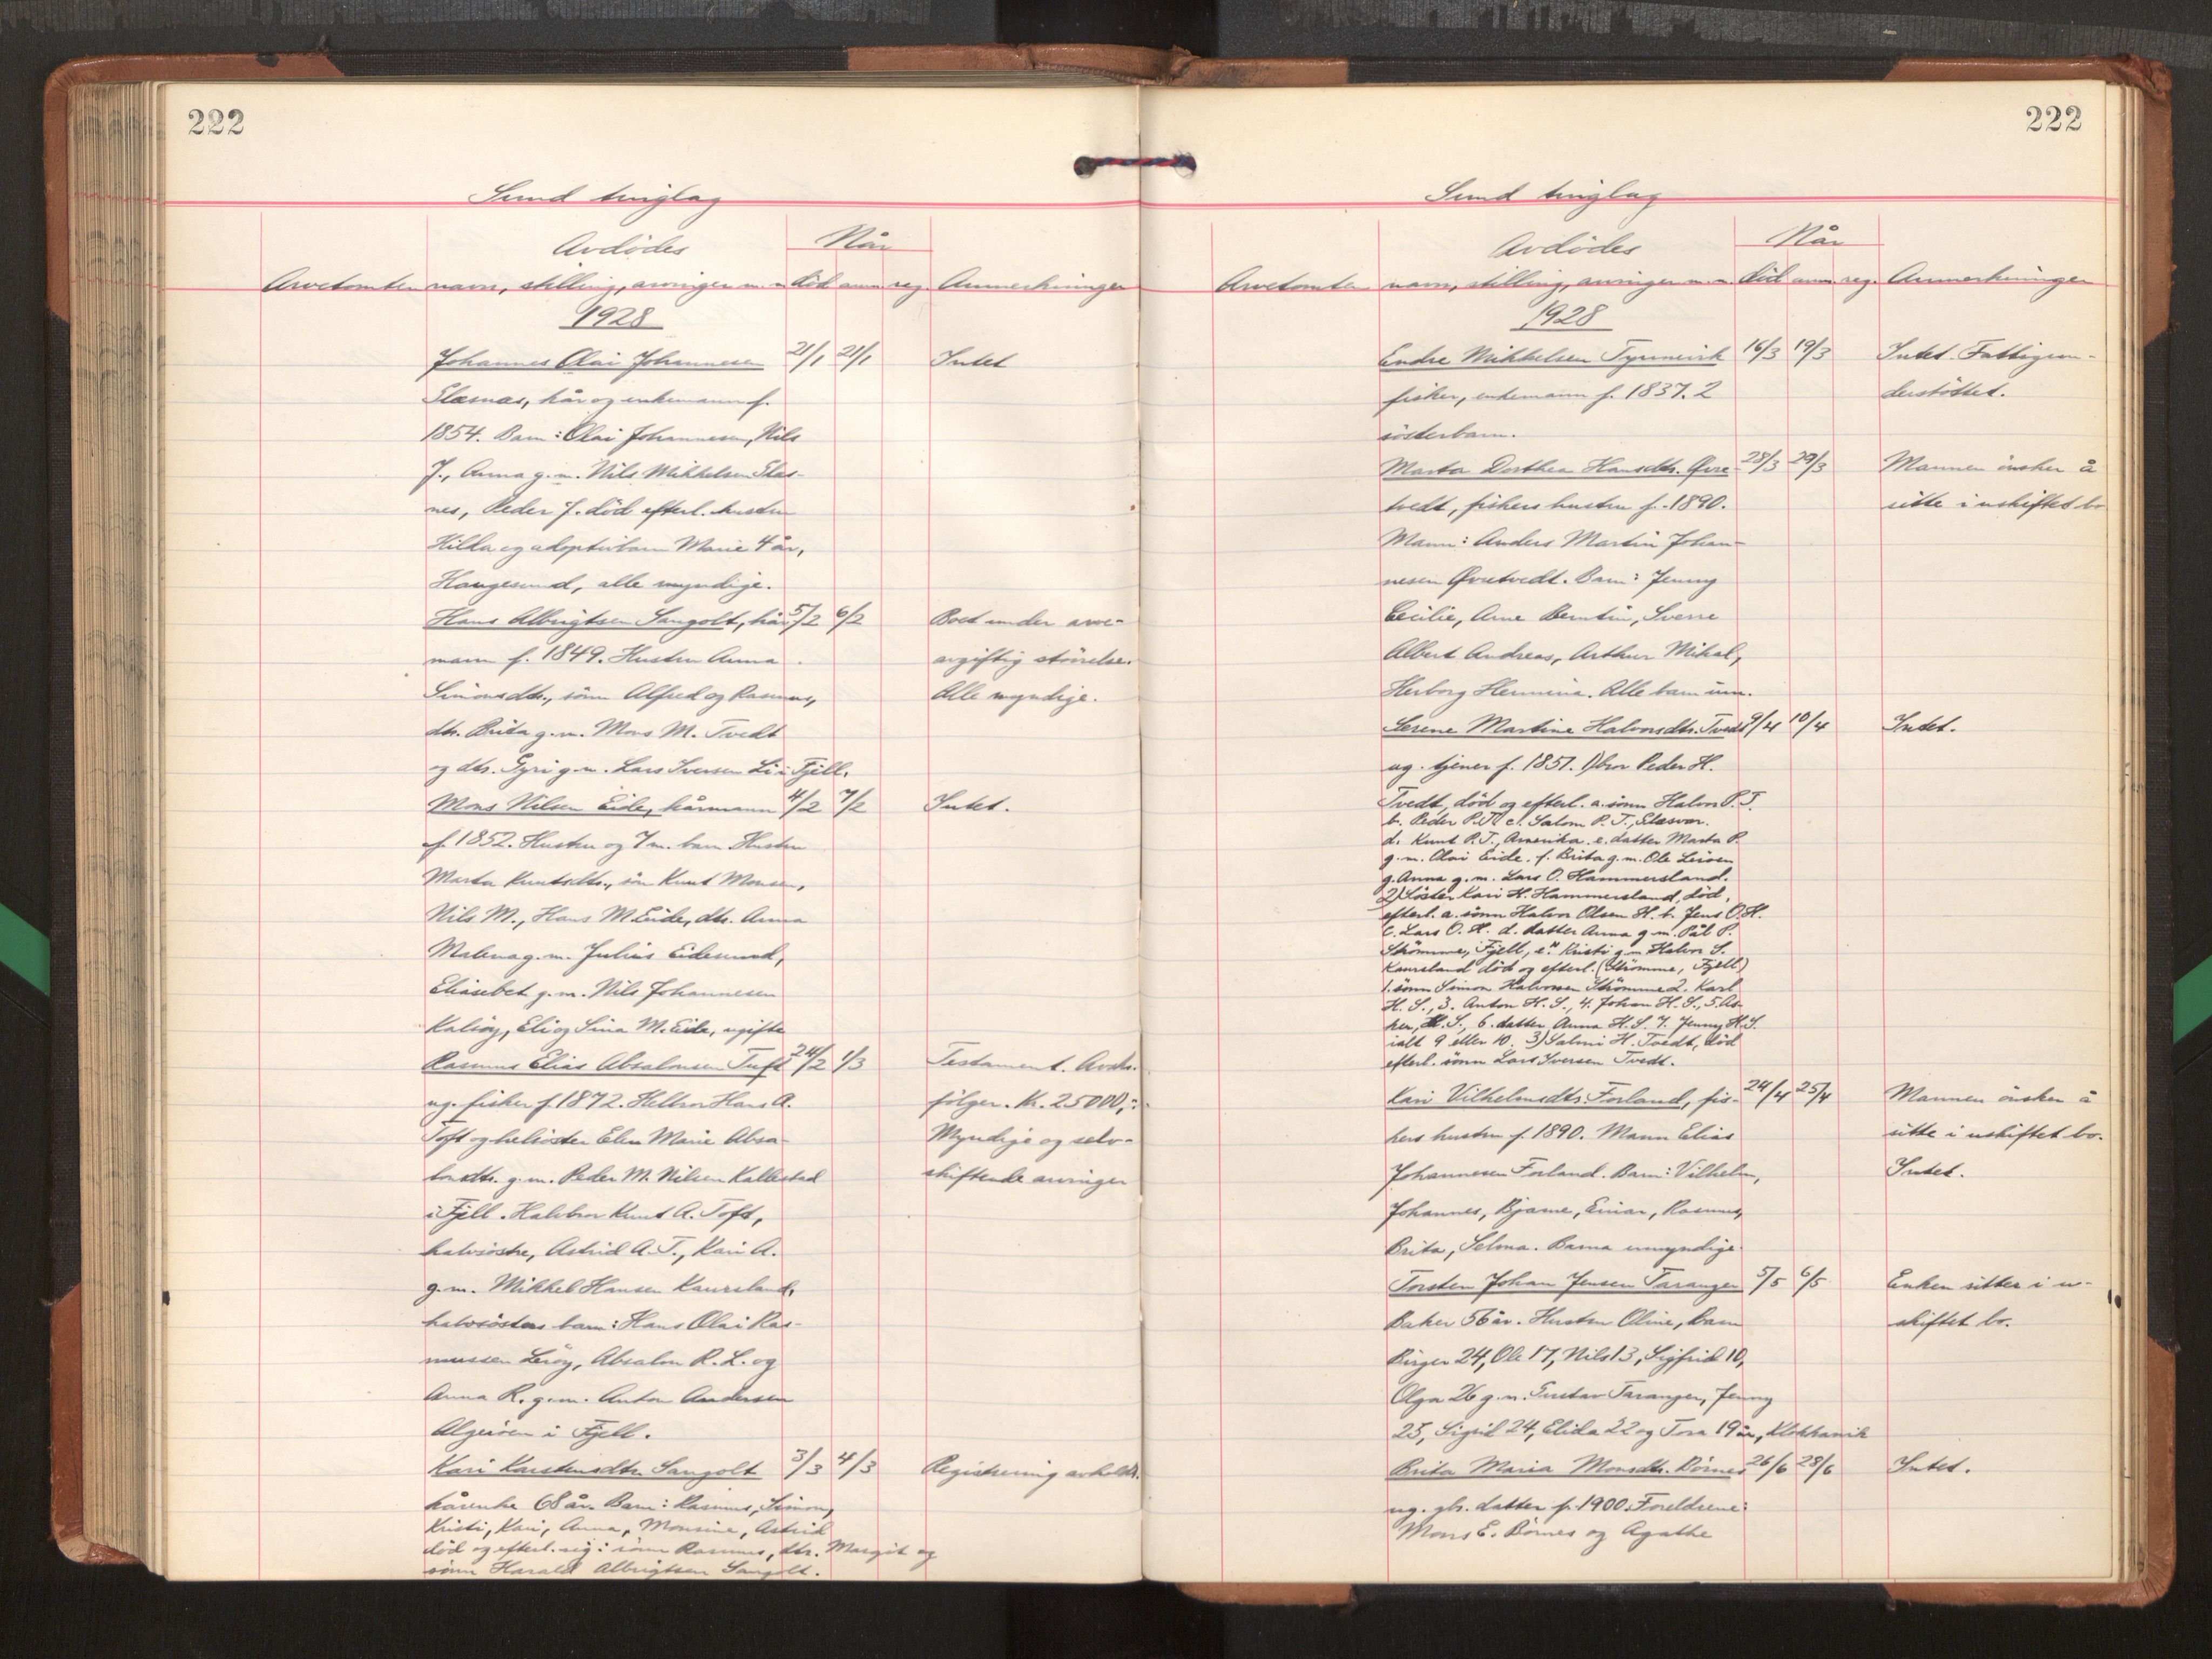 222
Sund tinglag
Avdødes
Når
Arvetomten navn, stilling, arvinger m.m. død anm. reg. Anmerkninger
1928
Johannes Olai Johannesen 21/1 21/1 Intet
Slæsnæs, hår og enkemann f.
1854. Barn: Olai Johannesen, Nils
J., Anna g.m. Nils Mikkelsen Slæs-
nes, Peder J. død efterl. hustru
Hilda og adoptivbarn Marie 4 år,
Haugesund, alle myndige.
Hans Albrigtsen Sangolt, kår- 5/2 6/2 Boet under arve-
mann f. 1849. Hustru Anna avgiftig størrelse.
Simonsdtr., sönn Alfred og Rasmus, Alle myndige.
dtr. Brita g.m. Mons M. Tvedt
og dtr. Gyri g.m. Lars Iversen Li i Fjell.
Mons Nilsen Eide, kårmann 4/2 7/2 Intet.
f. 1852. Hustru og 7 m. barn Hustru
Marta Knutsdtr., sön Knut Monsen,
Nils M., Hans M. Eide, dtr. Anna
Malena g.m. Julius Eidesund,
Eliasebet g.m. Nils Johannesen
Kalsöy, Eli og Sina M. Eide, ugifte
Rasmus Elias Absalonsen Tuft 24/2 1/3 Testament. Avskr.
ug. fisker f. 1872. Helbror Hans A. følger. Kr. 25000,-
Toft og helsöster Elen Marie Absa- Myndige og selv-
lonsdtr. g.m. Peder M. Nilsen Kallestad skiftende arvinger
i Fjell. Halvbror Knut A. Toft,
halvsöstre, Astrid A. T., Kari A.
g.m. Mikkel Hansen Kausland,
halvsösters barn: Hans Olai Ras-
mussen Leröy, Absalon R. L. og
Anna R. g.m. Anton Andersen
Algeröen i Fjell.
Kari Karstensdtr. Sangolt 3/3 4/3 Registrering avholdt.
kårenke 68 år. Barn: Rasmus, Simon,
Kristi, Kari, Anna, Monsine, Astrid
död og efterl. sig: sönn Rasmus, dtr. Margit og
sönn Harald Albrigtsen Sangolt.
222
Sund tinglag
Avdødes
Når
Arvetomten navn, stilling, arvinger m.m. død anm. reg. Anmerkninger
1928
Endre Mikkelsen Tyrnevik 16/3 19/3 Intet. Fattigun-
fisker, enkemann f. 1837. 2 derstöttet.
sösterbarn.
Marta Dorthea Hansdtr. Øvre- 28/3 29/3 Mannen önsker å
tvedt, fiskers hustru f. 1890. sitte i uskiftet bo
Mann: Anders Martin Johan-
nesen Øvretvedt. Barn: Jenny
Cecilie, Arne Berntin, Sverre
Albert Andreas, Arthur Mikal,
Herborg Hermina. Alle barn um.
Serene Martine Halvorsdtr. Tvedt 9/4 10/4 Intet.
ug. tjener f. 1851. 1) bror Peder H.
Tvedt, död og efterl. a. sönn Halvor P. T.
b. Peder P. T. c. Salom P. T., Slæsvær.
d. Knut P. T., Amerika. e. datter Marta P.
g.m. Olai Eide. f. Brita g.m. Ole Leröen
g. Anna g.m. Lars O. Hammersland.
2) Söster Kari H. Hammersland, död,
efterl. a. sönn Halvor Olsen H. b. Jens O. H.
c. Lars O. H. d. datter Anna g.m. Pål P.
Strömme, Fjell, e. " Kristi g.m. Halvor S.
Kausland död og efterl. (Strömme, Fjell)
1. sönn Simon Halvorsen Strömme 2. Karl
H. S., 3. Anton H. S., 4. Johan H. S., 5. As-
ker, H. S., 6. datter Anna H. S. 7. Jenny H. S.
ialt 9 eller 10. 3) Salmi H. Tvedt, död
efterl. sönn Lars Iversen Tvedt.
Kari Vilhelmsdtr. Forland, fis- 24/4 25/4 Mannen önsker å
kers hustru f. 1890. Mann Elias sitte i uskiftet bo.
Johannesen Forland. Barn: Vilhelm, Intet.
Johannes, Bjarne, Einar, Rasmus,
Brita, Selma. Barna umyndige.
Torsten Johan Jensen Taranger 5/5 6/5 Enken sitter i u-
Baker 56 år. Hustru Oline, barn skiftet bo.
Birger 24, Ole 17, Nils 13, Sigfrid 10,
Olga 26 g.m. Gustav Taranger, Jenny
25, Sigrid 24, Elida 22 og Tora 19 år, Klokkarvik
Brita Maria Monsdtr. Börnes 26/6 28/6 Intet.
ug. gbr. datter f. 1900. Foreldrene:
Mons E. Börnes og Agathe